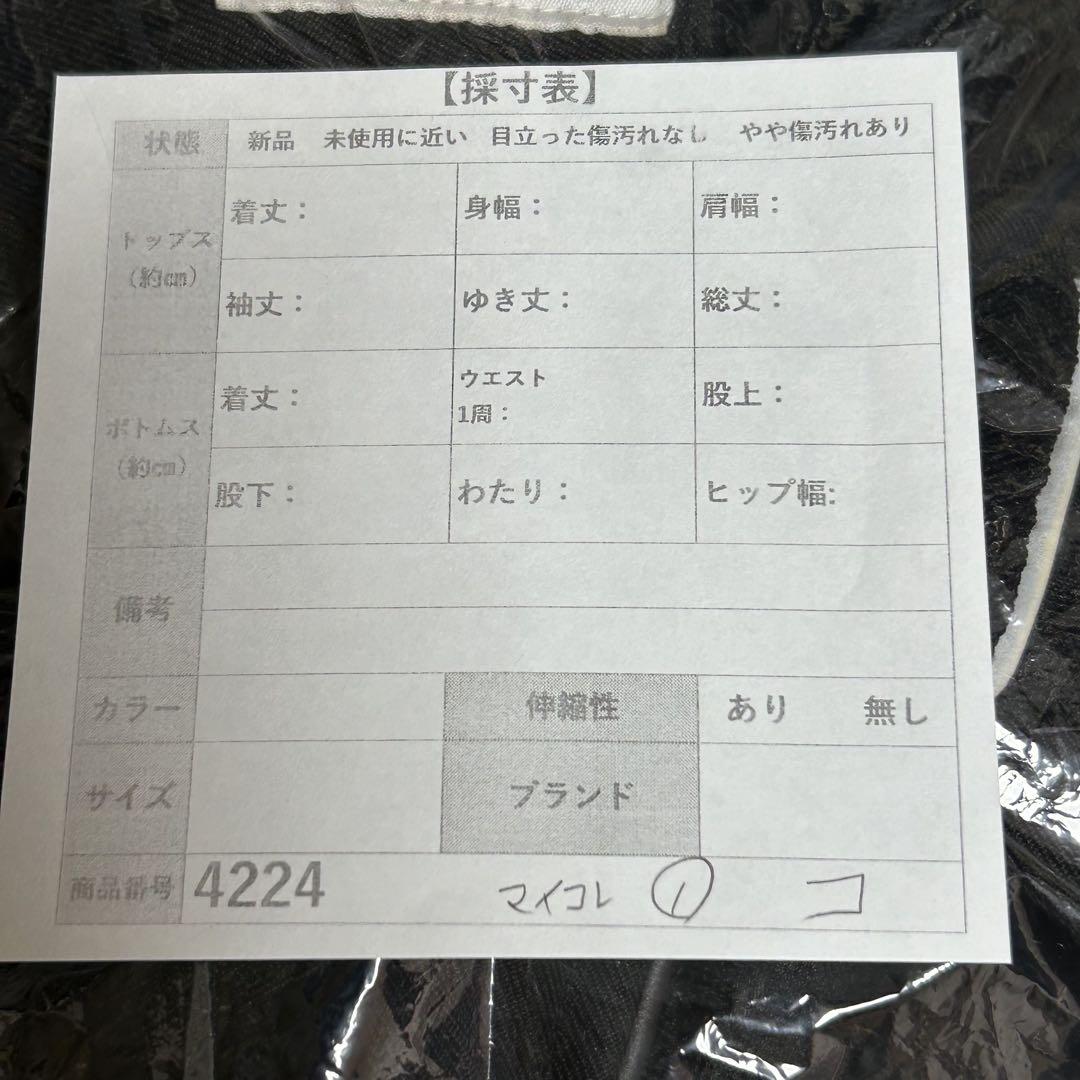 【採寸表】
状態 新品 未使用に近い 目立った傷汚れなし やや傷汚れあり
トップス
(約㎝)
着丈： 身幅： 肩幅：
袖丈： ゆき丈： 総丈：
ボトムス
(約㎝)
着丈： ウエスト
1周： 股上：
股下： わたり： ヒップ幅:
備考
カラー 伸縮性 あり 無し
サイズ ブランド
商品番号 4224 マイコレ ① コ